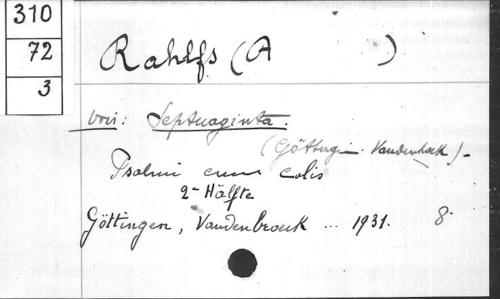 310
72
3
Rahlfs (A )
voir: Septuaginta.
(Göttingen Vandenhoeck) -
Psalmi cum Odis
2e Hälfte
Göttingen, Vandenbroeck ... 1931. 8°